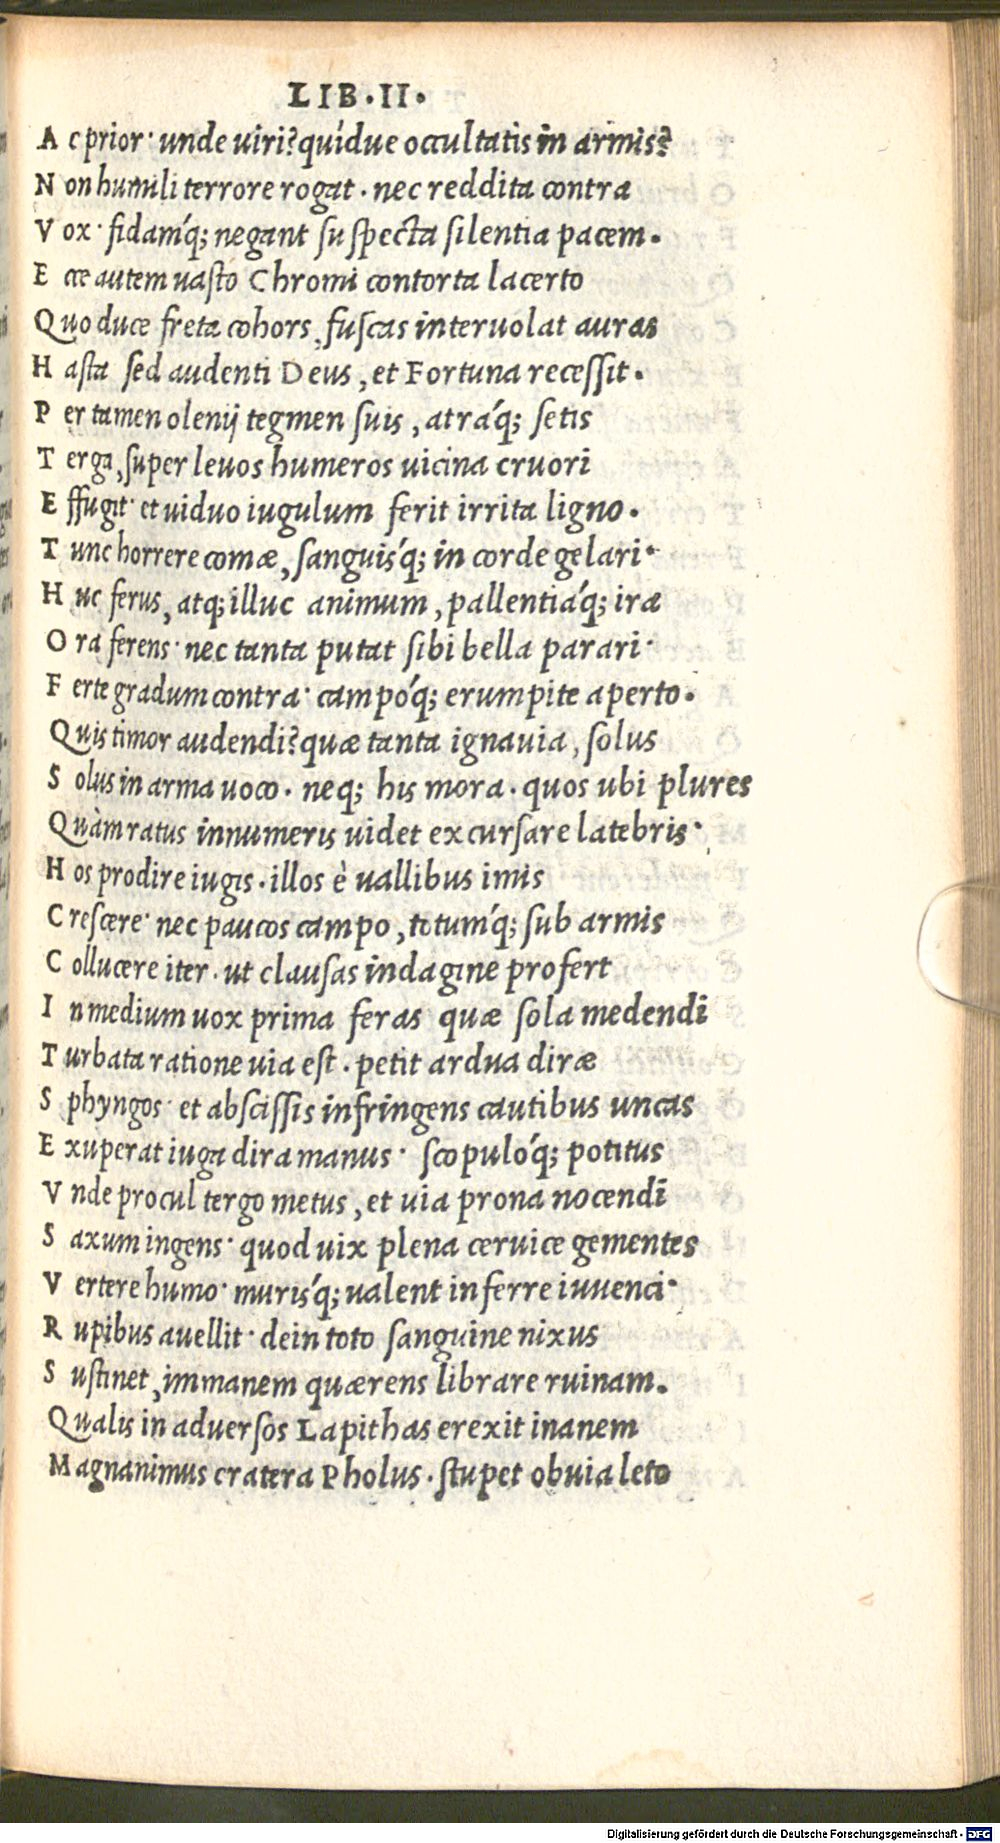 LIB.II.
A c prior· unde viri? quídue occultatis in armis?
N on humili terrore rogat. nec reddita contra
V ox· fidamq́; negant suspecta silentia pacem.
E cce autem uasto Chromi contorta lacerto
Quo duce freta cohors, fuscas interuolat auras
H asta sed audenti Deus, et Fortuna recessit.
P er tamen olenij tegmen suis, atráq; setis
T erga, super leuos humeros uicina cruori
E ffugit· et uiduo iugulum ferit irrita ligno.
T unc horrere comæ, sanguisq́; in corde gelari·
H uc ferus, atq; illuc animum, pallentiáq; iræ
O ra ferens· nec tanta putat sibi bella parari·
F erte gradum contra· campóq; erumpite aperto.
Quis timor audendi? quæ tanta ignauia, solus
S olus in arma uoco. neq; his mora. quos ubi plures
Quàm ratus innumeris uidet excursare latebris·
H os prodire iugis. illos è uallibus imis
C rescere· nec paucos campo, totumq́; sub armis
C ollucere iter. ut clausas indagine profert
I n medium uox prima feras quæ sola medendi
T urbata ratione uia est. petit ardua diræ
S phyngos· et abscissis infringens cautibus uncas
E xuperat iuga dira manus· scopulóq; potitus
V nde procul tergo metus, et uia prona nocendi
S axum ingens· quod uix plena ceruice gementes
V ertere humo· murisq́; ualent inferre iuuenci·
R upibus auellit· dein toto sanguine nixus
S ustinet, immanem quærens librare ruinam.
Qualis in aduersos Lapithas erexit inanem
Magnanimus cratera Pholus. stupet obuia leto
Digitalisierung gefördert durch die Deutsche Forschungsgemeinschaft - DFG